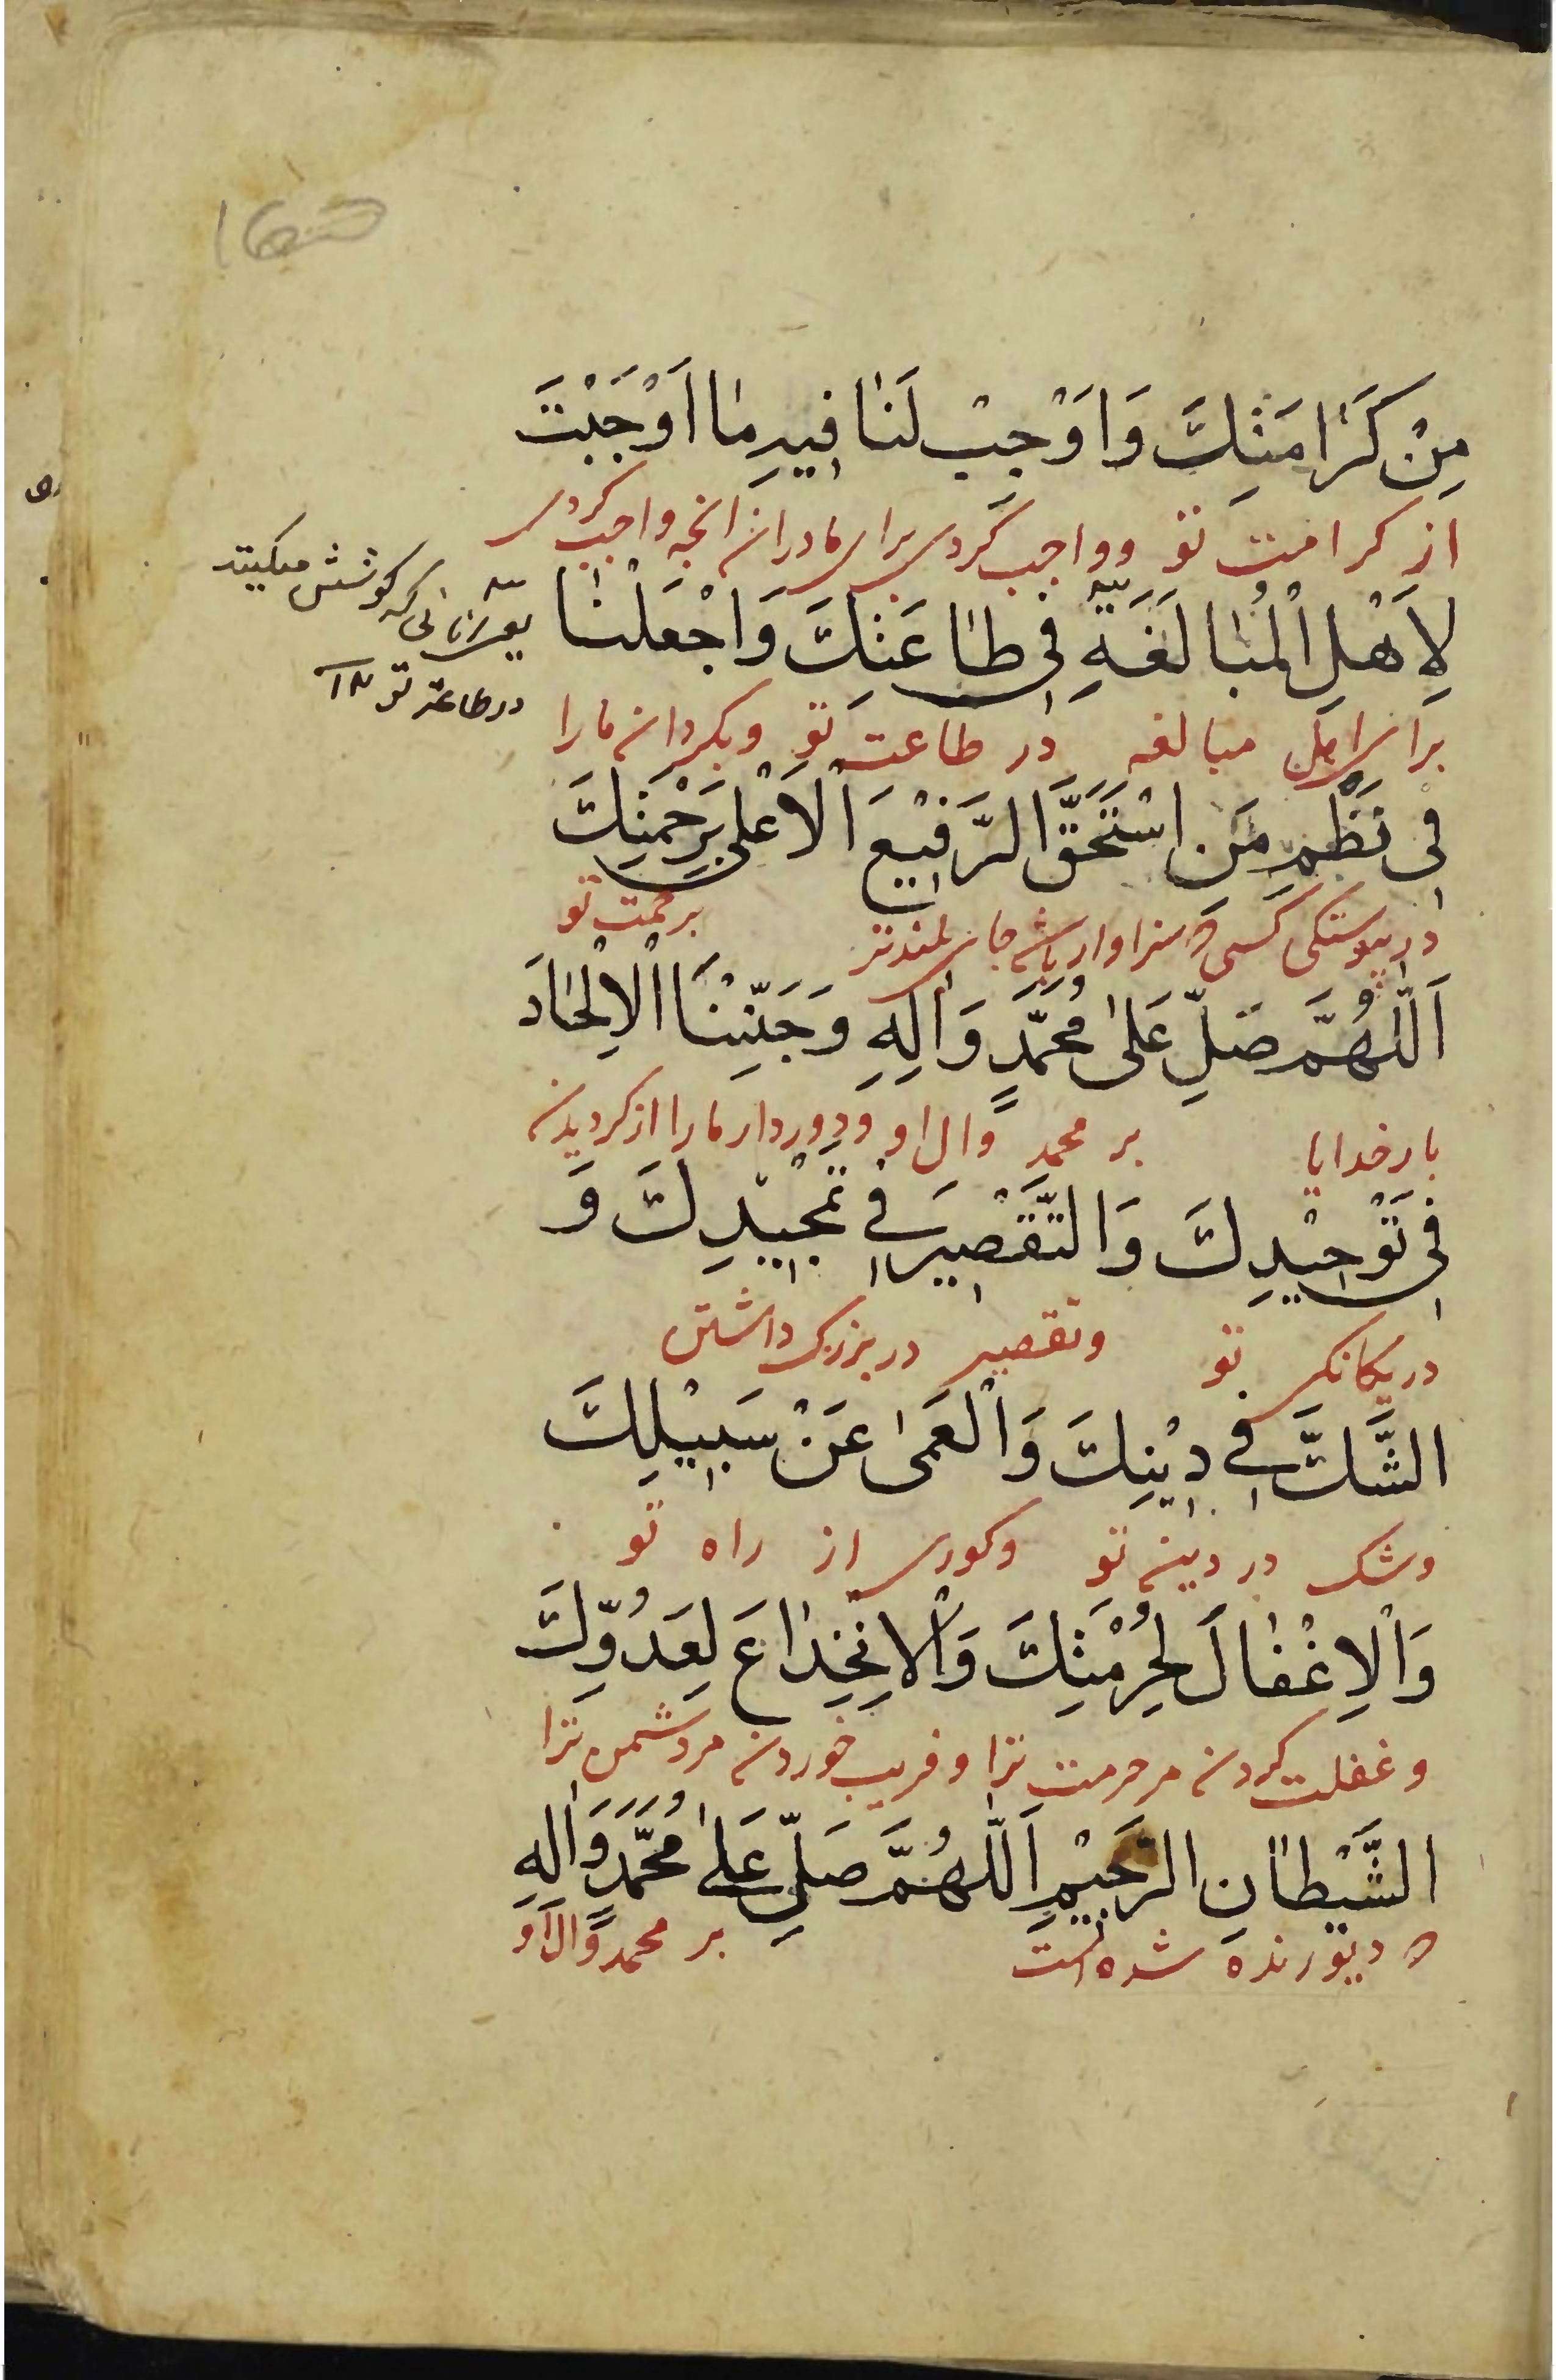 مِنْ كَرَامَتِكَ وَاَوْجِبْ لَنَا فِيهِ مَا اَوْجَبْتَ
از كرامت تو وواجب گردی برای ما دران انچه واجب كردی
لِاَهْلِ الْمُبَالَغَةِ فِی طَاعَتِكَ وَاجْعَلْنَا
كه كوشش میكنند
در طاعت تو
برای اهل مبالغه در طاعت تو وبگردان ما را
فِی نَظْمِ مَنِ اسْتَحَقَّ الرَّفِيْعَ الْاَعْلٰی بِرَحْمَتِكَ
در پیوستگی كسی كه سزاوار باشد جای بلندتر برحمت تو
اَللّٰهُمَّ صَلِّ عَلٰی مُحَمَّدٍ وَاٰلِهِ وَجَنِّبْنَا الْاِلْحَادَ
بار خدایا بر محمد وال او ودور دار ما را از كردیدن
فِی تَوْحِيْدِكَ وَالتَّقْصِيرَ فِی تَمْجِيْدِكَ وَ
در یكانكی تو وتقصیر در بزرك داشتن
الشَّكَّ فِی دِيْنِكَ وَالْعَمٰی عَنْ سَبِيْلِكَ
وشك در دین تو وكوری از راه تو
وَالْاِغْفَالَ لِحُرْمَتِكَ وَالْاِنْخِدَاعَ لِعَدُوِّكَ
وغفلت كردن مر حرمت ترا وفریب خوردن مر دشمن ترا
الشَّيْطَانِ الرَّجِيْمِ اَللّٰهُمَّ صَلِّ عَلٰی مُحَمَّدٍ وَاٰلِهِ
كه دیو رنده شده است بر محمد وال او